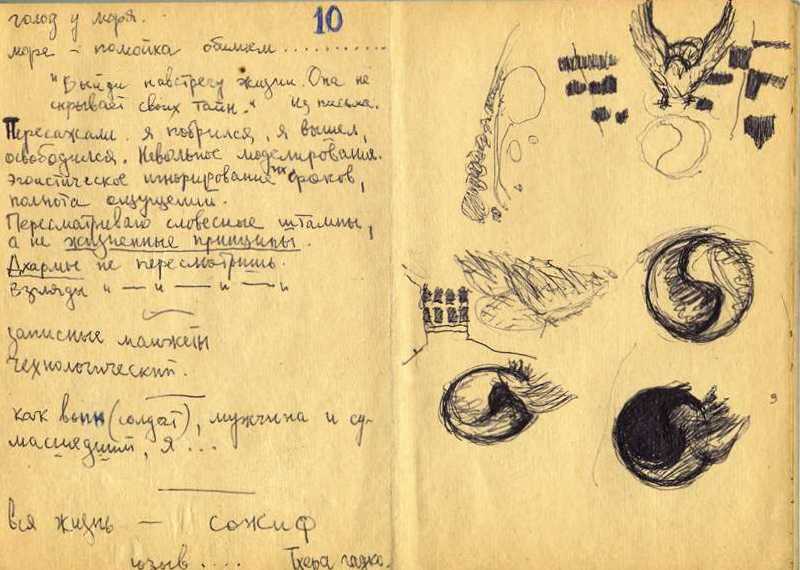 голод у моря.
10
море – помойка обилием ............
"Выйди навстречу жизни. Она не
скрывает своих тайн." Из письма.
Пересажали. Я побрился, я вышел,
освободился. Невольное моделирование.
Эгоистическое игнорирование их сроков,
полнота ощущений.
Пересматриваю словесные штампы,
а не жизненные принципы.
Дхармы не пересмотришь.
Взгляды " — и — и — и
записные манжеты
технологический.
как воин (солдат), мужчина и су-
масшедший, я ...
вся жизнь —
....